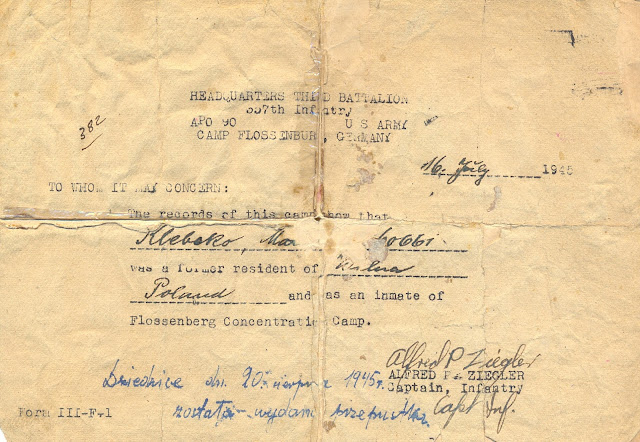 HEADQUARTERS THIRD BATTALION
357th Infantry
APO 90 U S ARMY
CAMP FLOSSENBUR, GERMANY
382
16. July 1945
TO WHOM IT MAY CONCERN:
The records of this camp show that
Klebeko, Mar
was a former resident of Wilna
Poland and as an inmate of
Flossenberg Concentratio Camp.
Alfred P Ziegler
ALFRED P. ZIEGLER
Captain, Infantry
Capt Inf.
Dziedzice dn. 20 sierpnia 1945r.
została wydana przepustka.
Form III-F-1